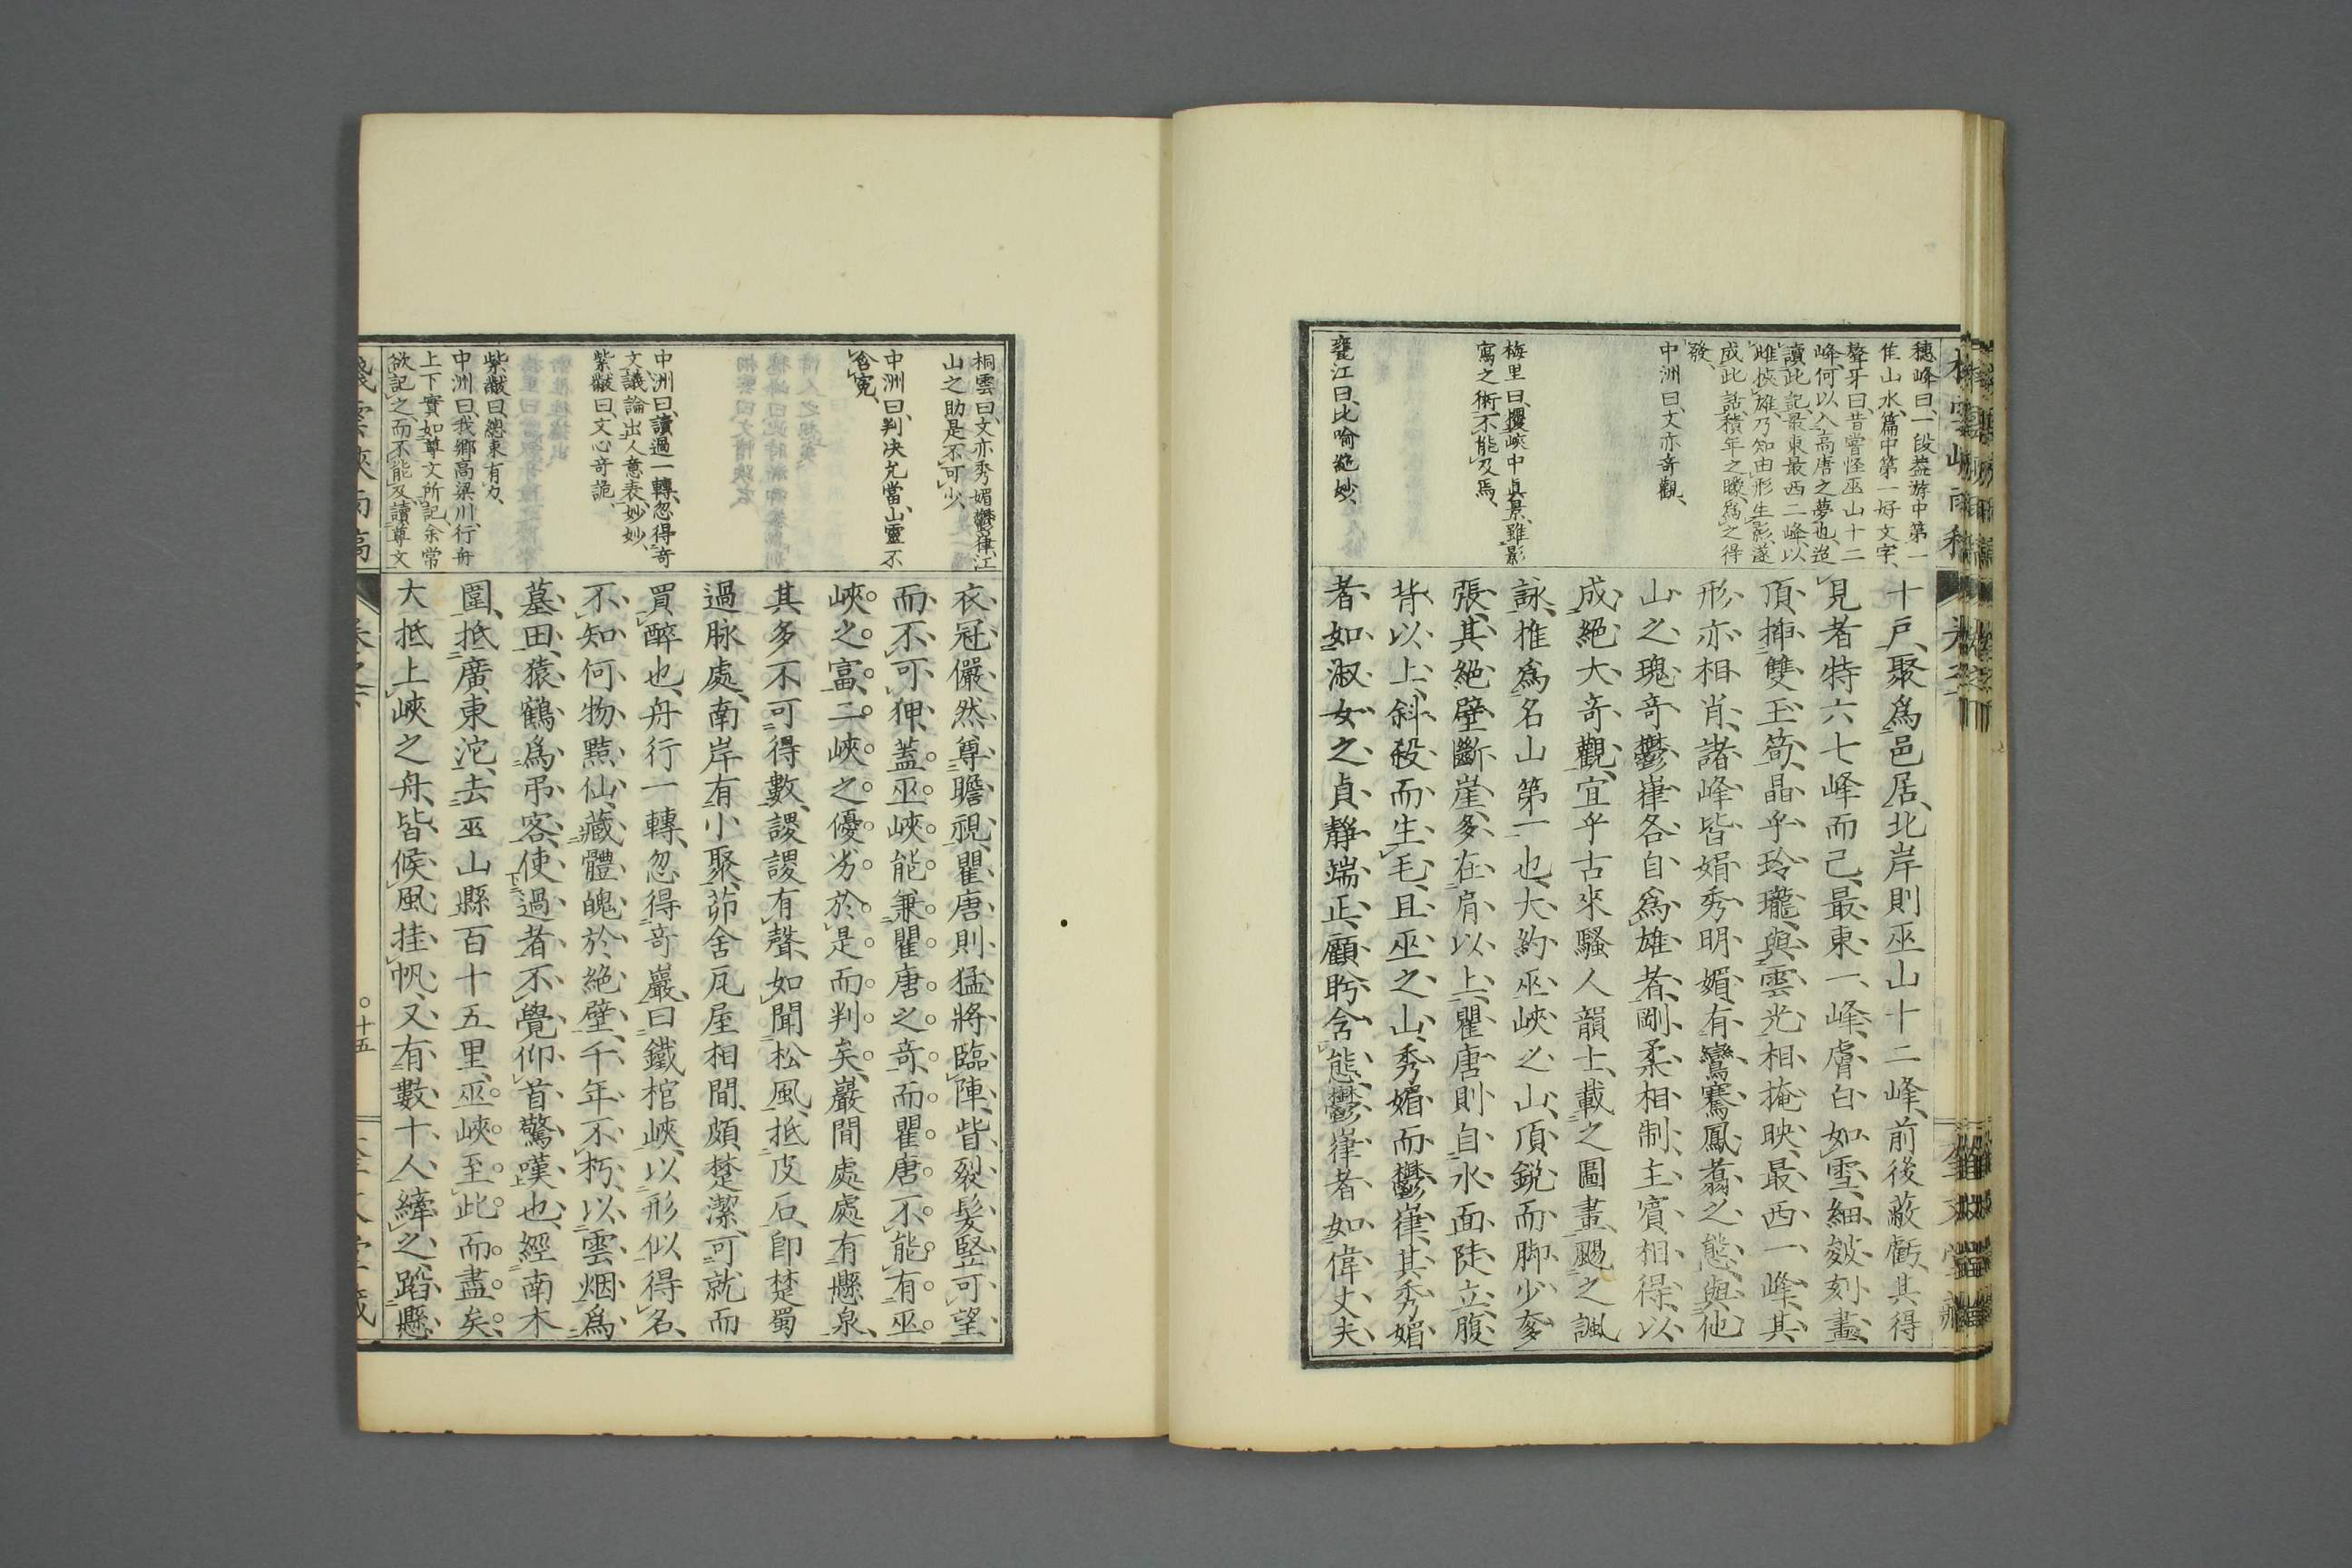 穗峰曰、一段蓋游中第一
佳山水、篇中第一好文字、
聱牙曰、昔嘗怪巫山十二
峰、何以入高唐之夢也、迨
讀此記、最東最西二峰、以
雌挾雄、乃知由形生影、遂
成此話、積年之曖、爲之得
發、
中洲曰、文亦奇觀、
梅里曰、攫峽中眞景、雖影
寫之術、不能及焉、
甕江曰、比喩絶妙、
十戶、聚爲邑居、北岸則巫山十二峰、前後蔽虧、其得
見者特六七峰而已、最東一峰、膚白如雪、細皴刻畫、
頂揷雙玉筍、晶乎玲瓏、與雲光相掩映、最西一峰、其
形亦相肖、諸峰皆娟秀明媚、有鸞騫鳳翥之態、與他
山之瑰奇鬱嵂各自爲雄者、剛柔相制、主賓相得、以
成絕大奇觀、宜乎古來騷人韻士、載之圖畫、颺之諷
詠、推爲名山第一也、大約巫峽之山、頂銳而脚少奓
張、其絕壁斷崖、多在肩以上、瞿唐則自水面陡立、腹
背以上、斜殺而生毛、且巫之山、秀媚而鬱嵂、其秀媚
者、如淑女之貞靜端正、顧眄含態、鬱嵂者、如偉丈夫
桐雲曰、文亦秀媚鬱嵂、江
山之助是不可少、
中洲曰、判决允當、山靈不
含寃、
中洲曰、讀過一轉、忽得奇
文、議論出人意表、妙妙、
紫巘曰、文心奇詭、
紫巘曰、總束有力、
中洲曰、我鄉高梁川、行舟
上下、實如尊文所記、余常
欲記之、而不能及、讀尊文
衣冠儼然、尊瞻視、瞿唐則猛將臨陣、眥裂髮竪、可望
而不可狎、蓋巫峽能兼瞿唐之奇、而瞿唐不能有巫
峽之富、二峽之優劣、於是而判矣、巖間處處有懸泉、
其多不可得數、謖謖有聲、如聞松風、抵皮石、卽楚蜀
過脉處、南岸有小聚、茆舍瓦屋相間、頗楚潔、可就而
買醉也、舟行一轉、忽得奇巖、曰鐵棺峽、以形似得名、
不知何物黠仙、藏體魄於絕壁、千年不朽、以雲烟爲
墓田、猿鶴爲弔客、使過者不覺仰首驚嘆也、經南木
圍、抵廣東沱、去巫山縣百十五里、巫峽至此而盡矣、
大抵上峽之舟、皆候風挂帆、又有數十人縴之、蹈懸
棧雲峽雨稿
卷之下
〇十五
奎文堂藏